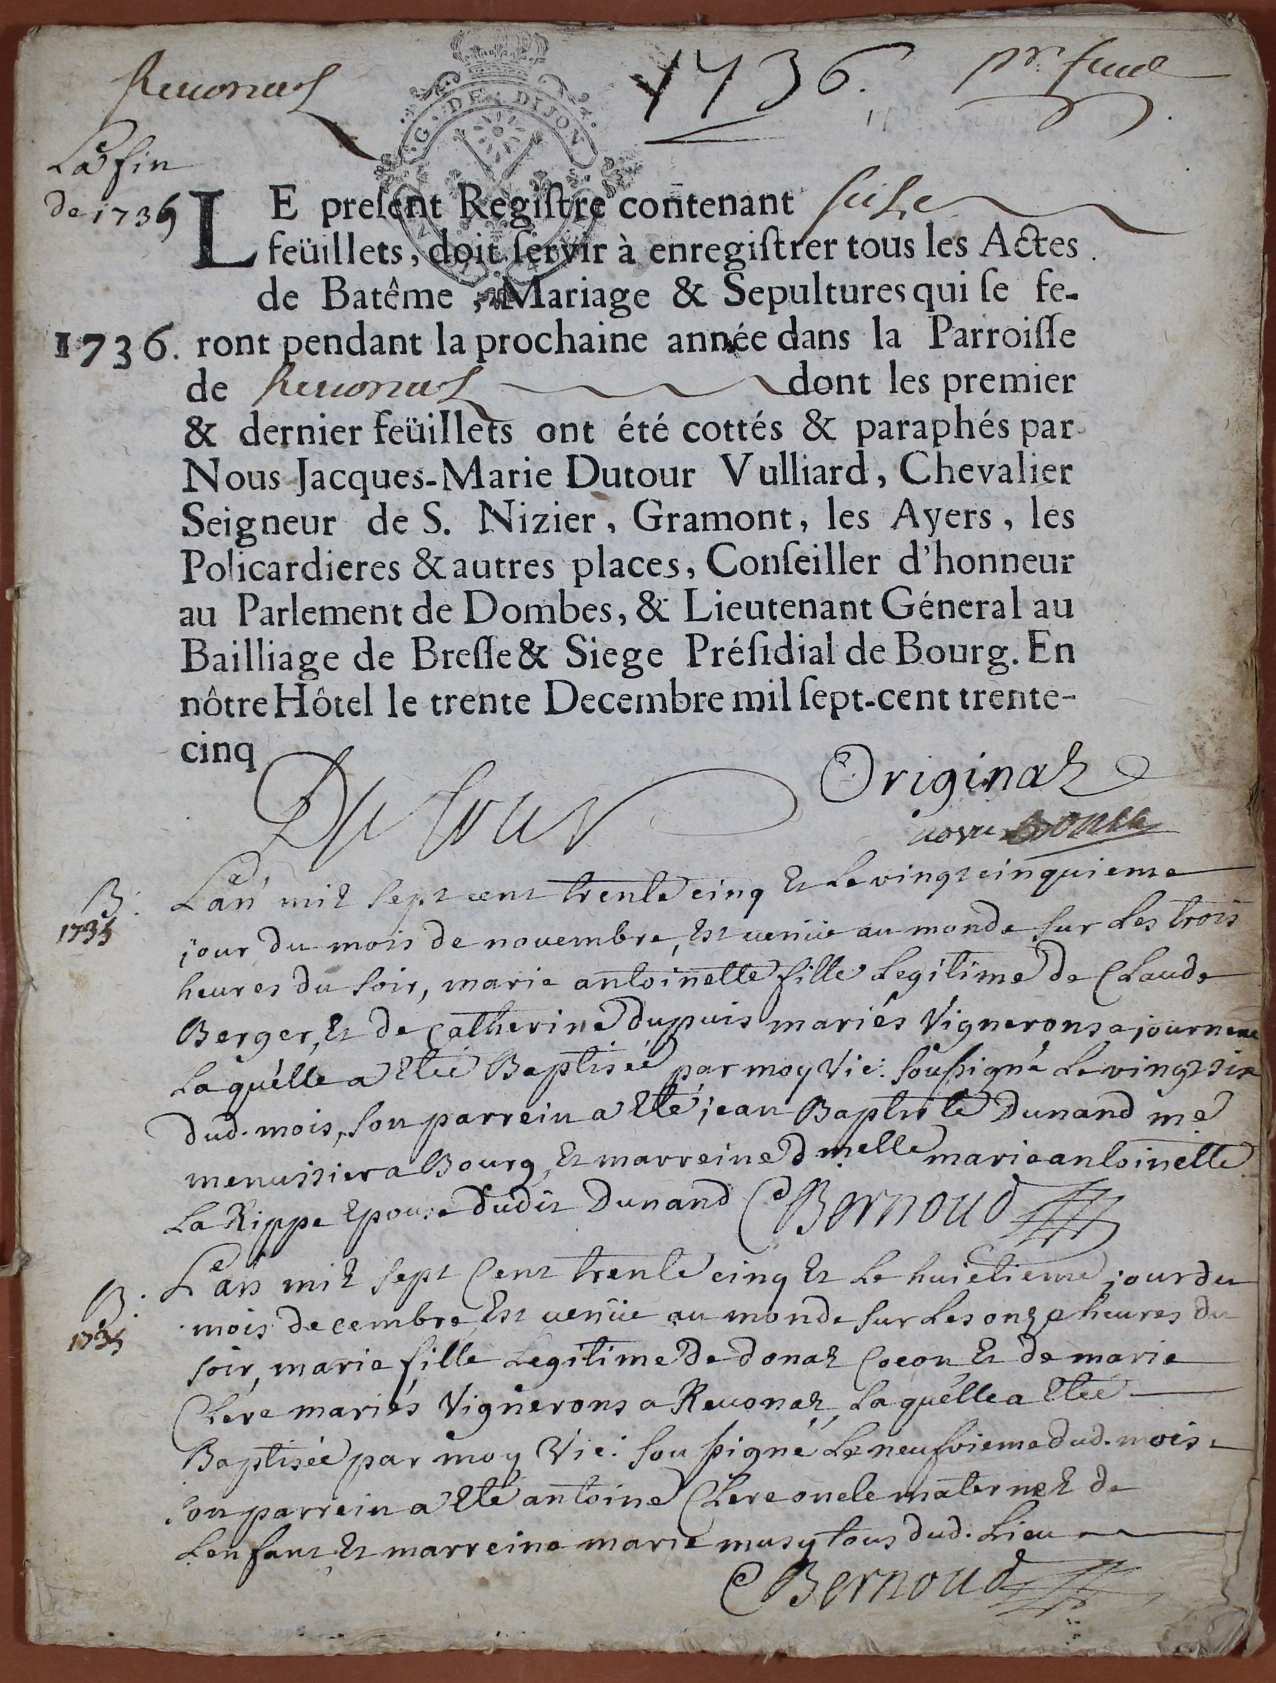 Reuonas
1736.
pr. feuil
La fin
de 1735
G. DE DIJON
LE preſent Regiſtre contenant seize
feüillets, doit ſervir à enregiſtrer tous les Actes
de Batême, Mariage & Sepultures qui ſe fe-
1736. ront pendant la prochaine année dans la Parroiſſe
de Reuonas dont les premier
& dernier feüillets ont été cottés & paraphés par
Nous Jacques-Marie Dutour Vulliard, Chevalier
Seigneur de S. Nizier, Gramont, les Ayers, les
Policardieres & autres places, Conſeiller d'honneur
au Parlement de Dombes, & Lieutenant Géneral au
Bailliage de Breſſe & Siege Préſidial de Bourg. En
nôtre Hôtel le trente Decembre mil ſept-cent trente-
cinq
Dutour
Original
B:
1735
L'an mil sept cent trente cinq et le vingt cinquieme
jour du mois de nouembre, est venüe au monde sur les trois
heures du soir, marie antoinette fille Legitime de Claude
Berger, et de Catherine dupuis mariés Vignerons a journeux
Laquelle a etée Baptisée par moy Vic: soussigné le vingt six
dud. mois, son parrein a eté jean Baptiste Dunand me
menuisier a Bourg, et marreine dmelle marie antoinette
La Rippe Epouse dudit Dunand C Bernoud
B:
1735
L'an mil sept Cent trente cinq et le huictieme jour du
mois decembre, Est venüe au monde sur les onze heures du
soir, marie fille Legitime de donat Cocon et de marie
Clere mariés Vignerons a Reuonas, Laquelle a etée
Baptisée par moy Vic: soussigné le neufvieme dud. mois
son parrein a eté antoine Clere oncle maternel de
Lenfant et marreine marie musy tous dud. Lieu
C Bernoud